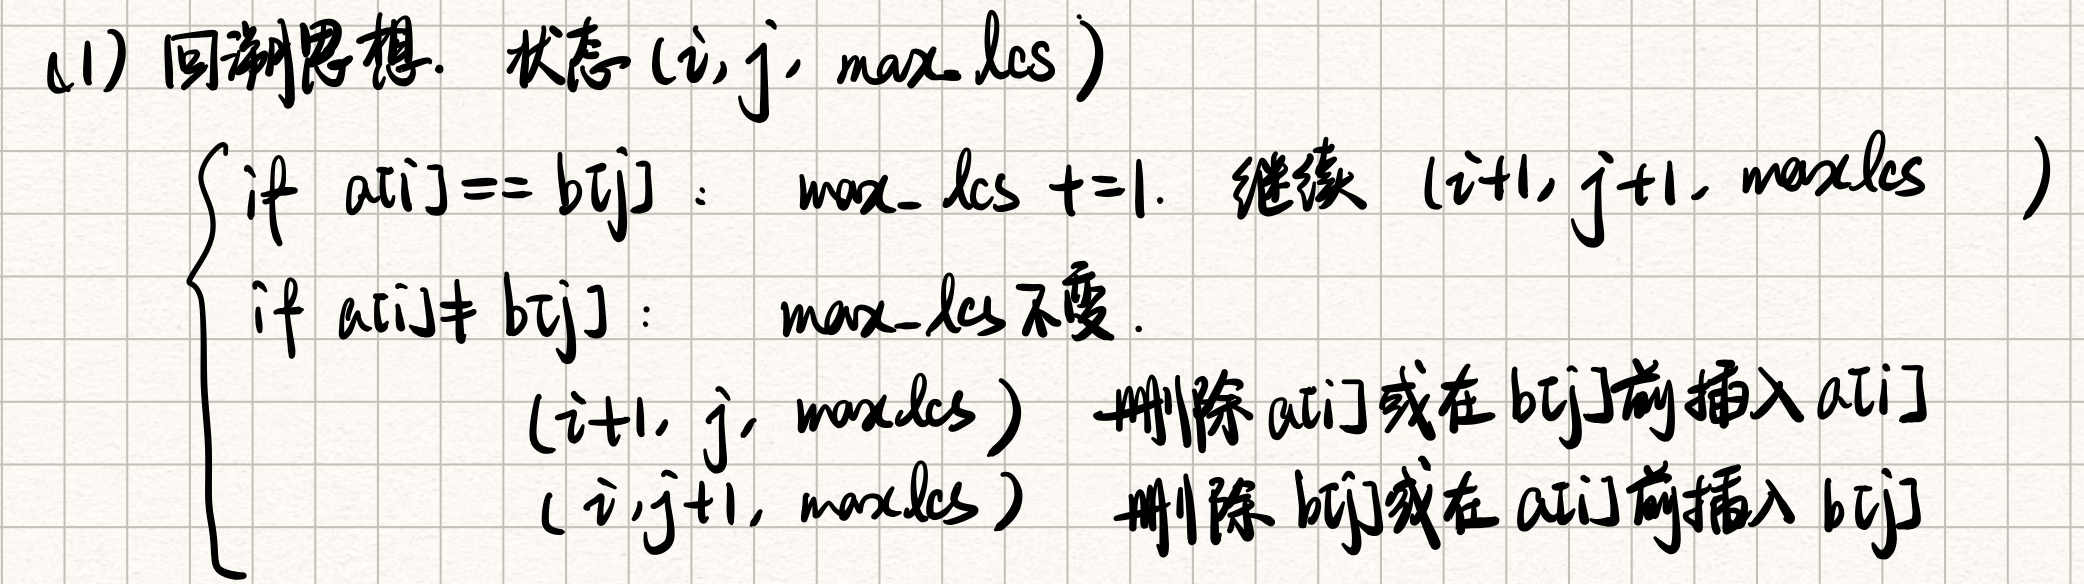 (1) 回溯思想. 状态 (i, j, max_lcs)
if a[i] == b[j] : max_lcs +=1. 继续 (i+1, j+1, maxlcs )
if a[i] ≠ b[j] : max_lcs 不变.
(i+1, j, maxlcs) 删除 a[i] 或在 b[j] 前插入 a[i]
(i, j+1, maxlcs) 删除 b[j] 或在 a[i] 前插入 b[j]